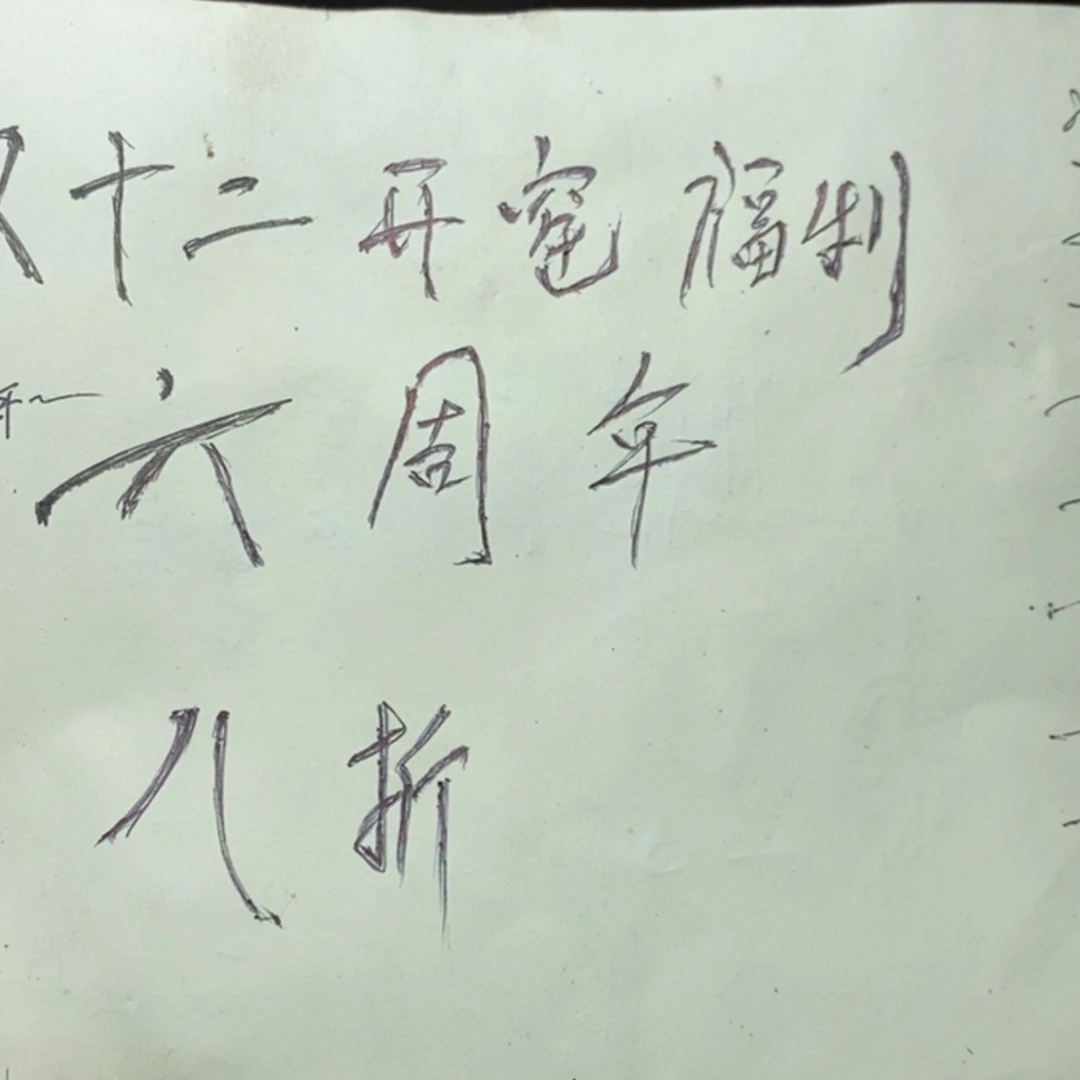 十二开窑福利
六周年
八折